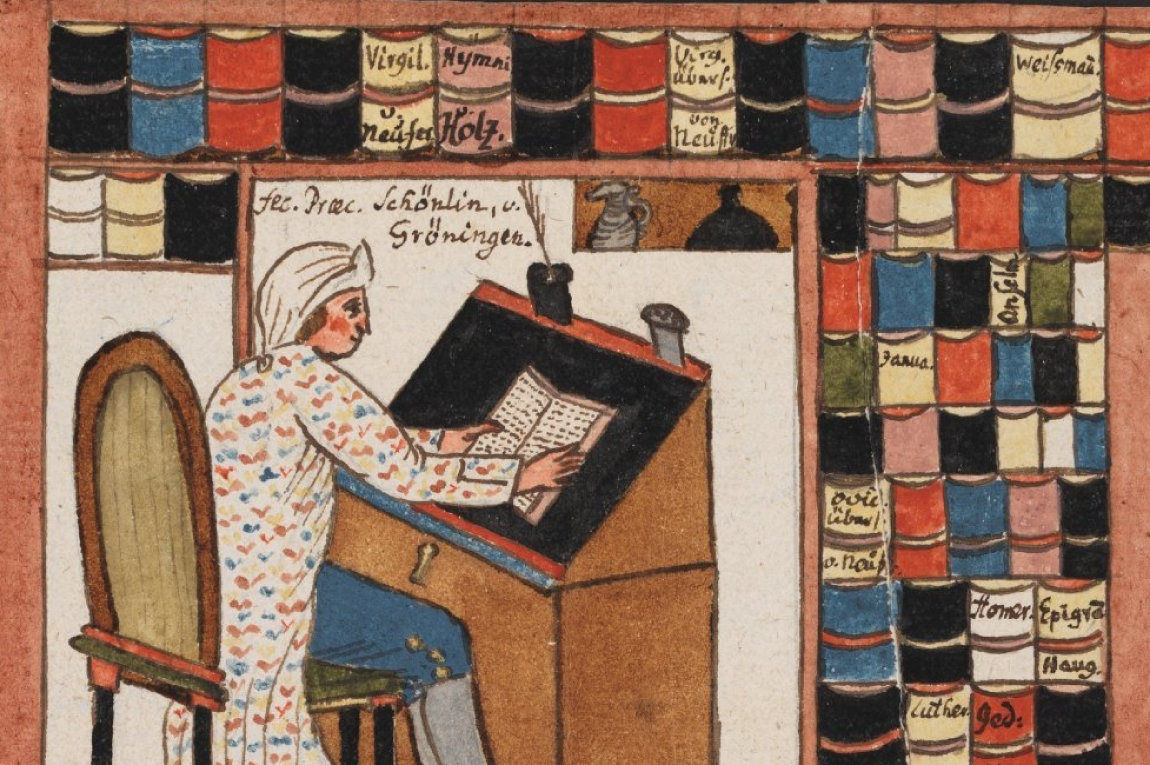 Virgil.
v
Neuffer
Hymni
v
Holz.
Virg.
übers.
von
Neuffr
Weißman.
fec. Præc. Schönlin, v.
Gröningen.
Anselm
Janua.
ovid
übers
v. Neuf
Homer.
Epigra
Haug.
Luther
Ged: